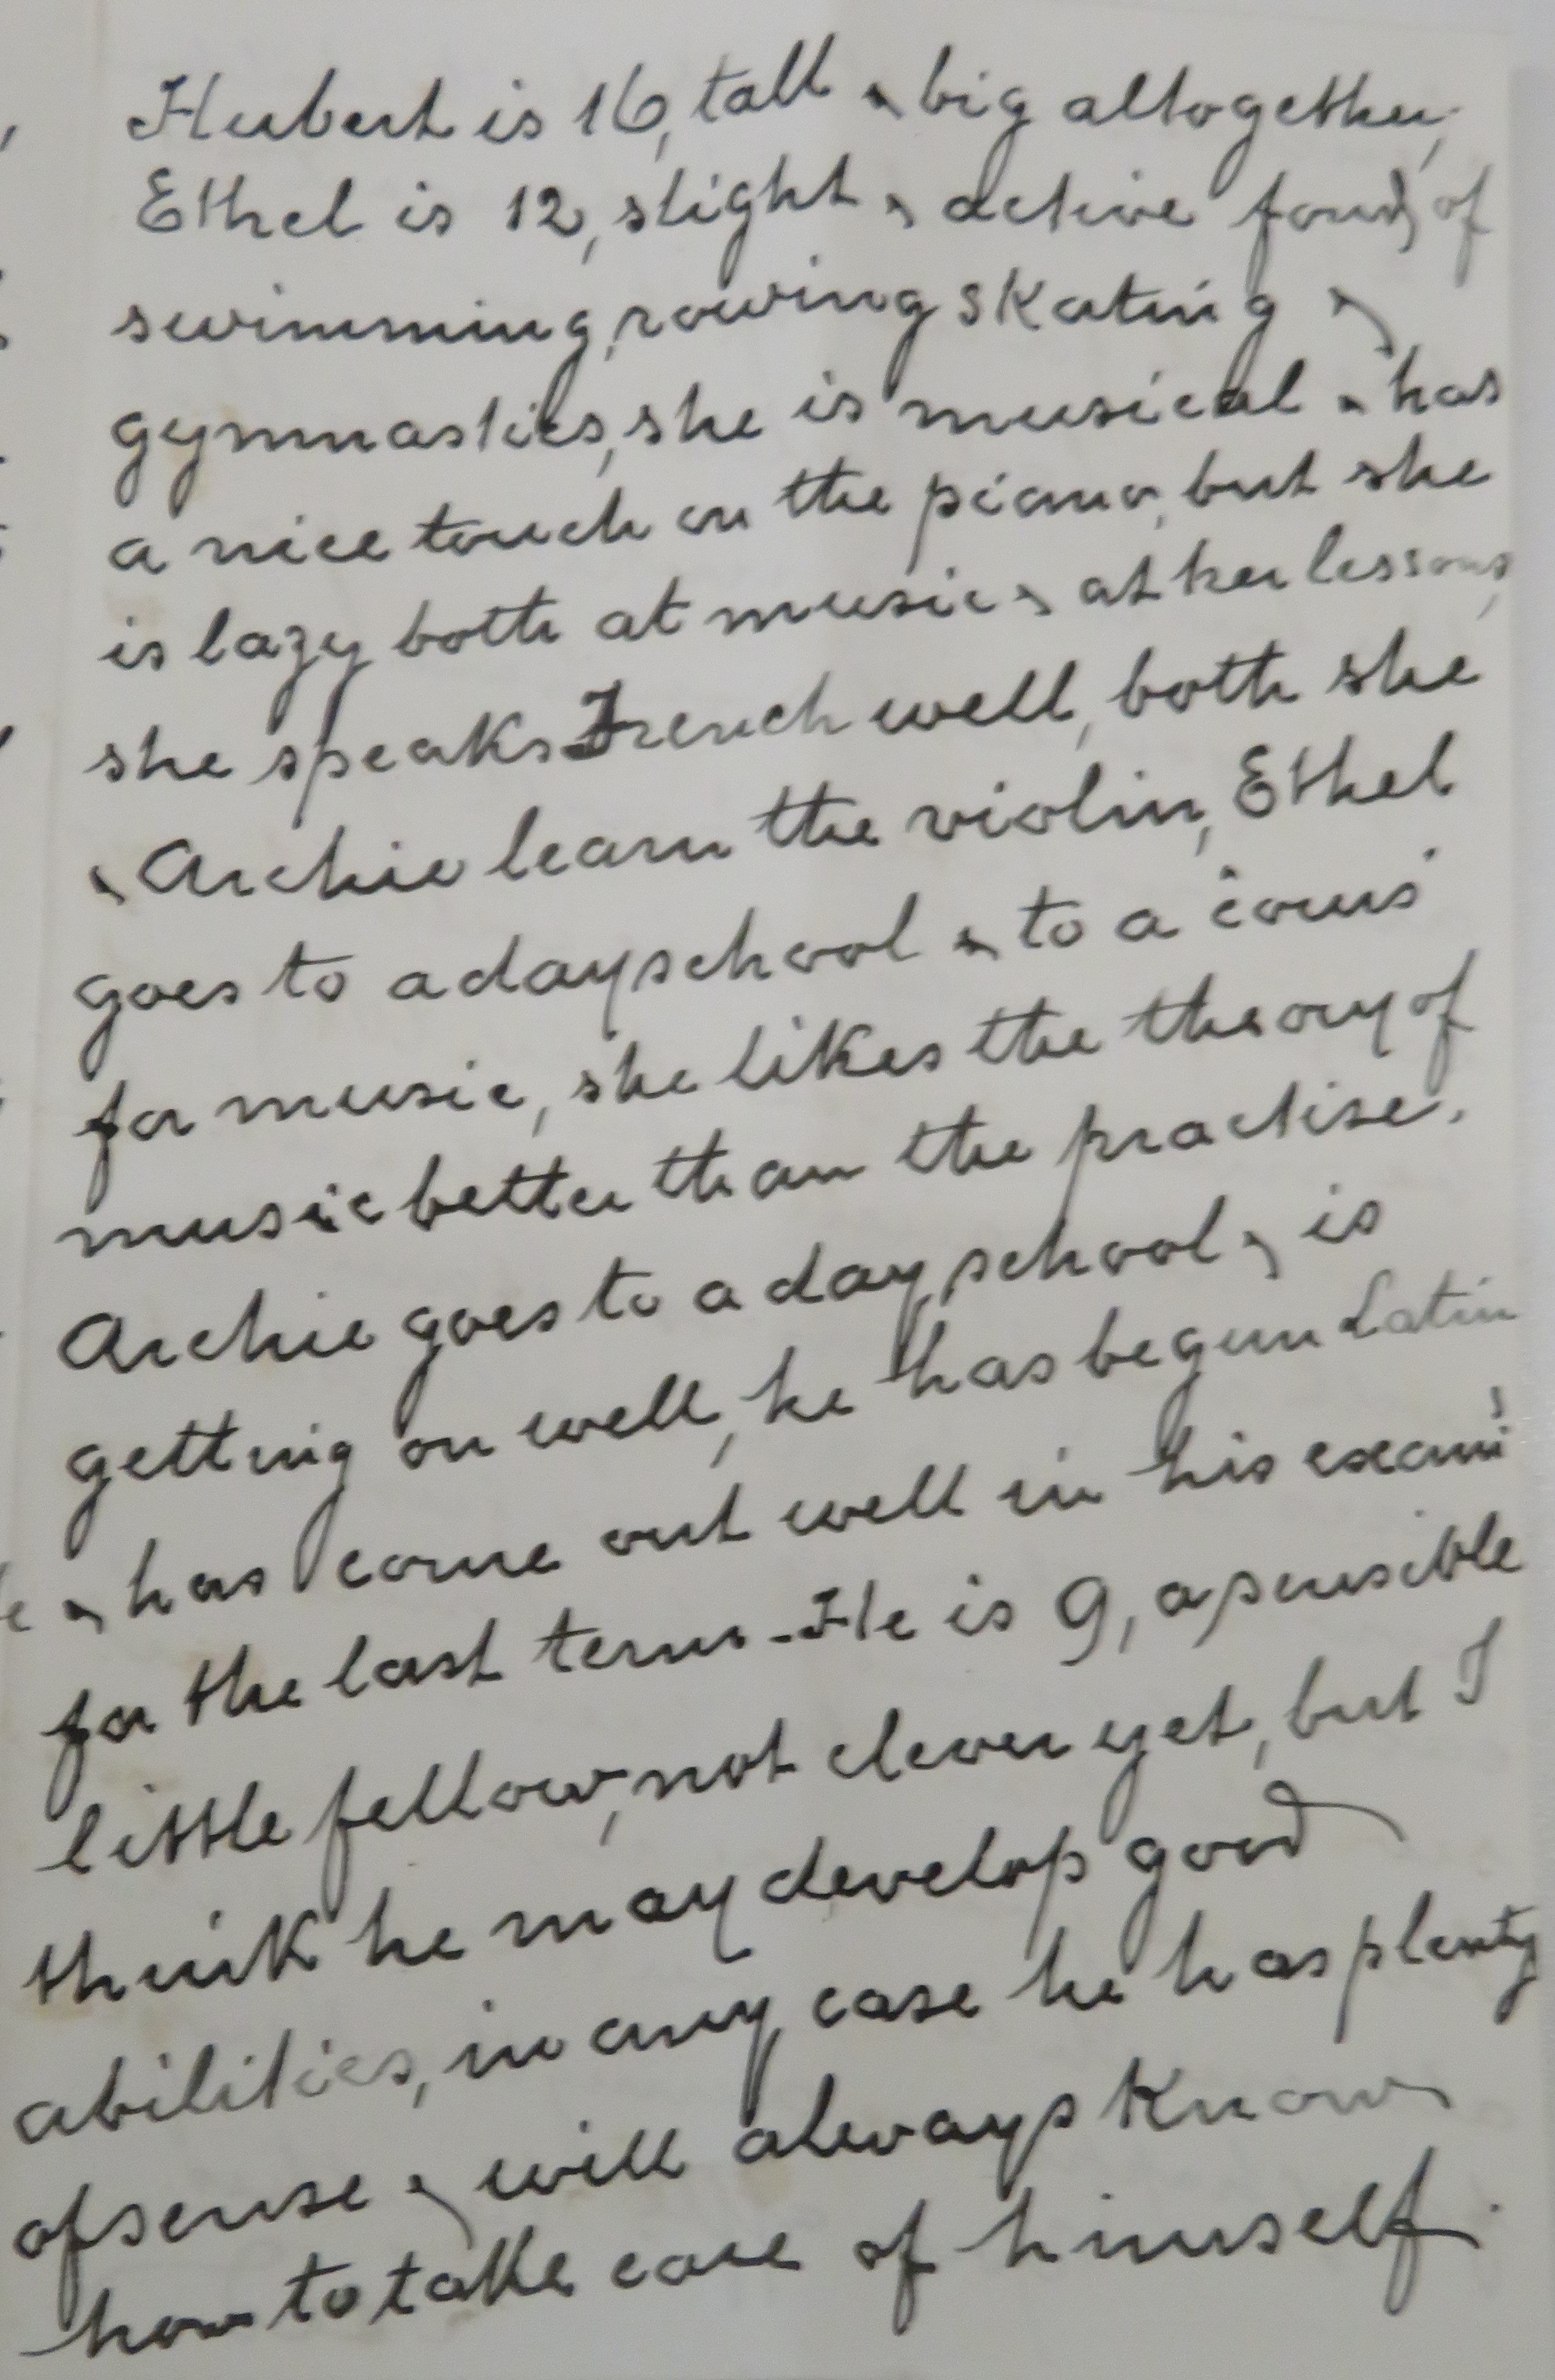 Hubert is 16, tall & big altogether,
Ethel is 12, slight & active fond of
swimming, rowing skating &
gymnastics, she is musical & has
a nice touch on the piano, but she
is lazy both at music & at her lessons,
she speaks French well, both she
& Archie learn the violin, Ethel
goes to a day school & to a 'cours'
for music, she likes the theory of
music better than the practise.
Archie goes to a day school & is
getting on well, he has begun Latin
& has come out well in his exams
for the last term - He is 9, a sensible
little fellow, not clever yet, but I
think he may develop good
abilities, in any case he has plenty
of sense & will always know
how to take care of himself.